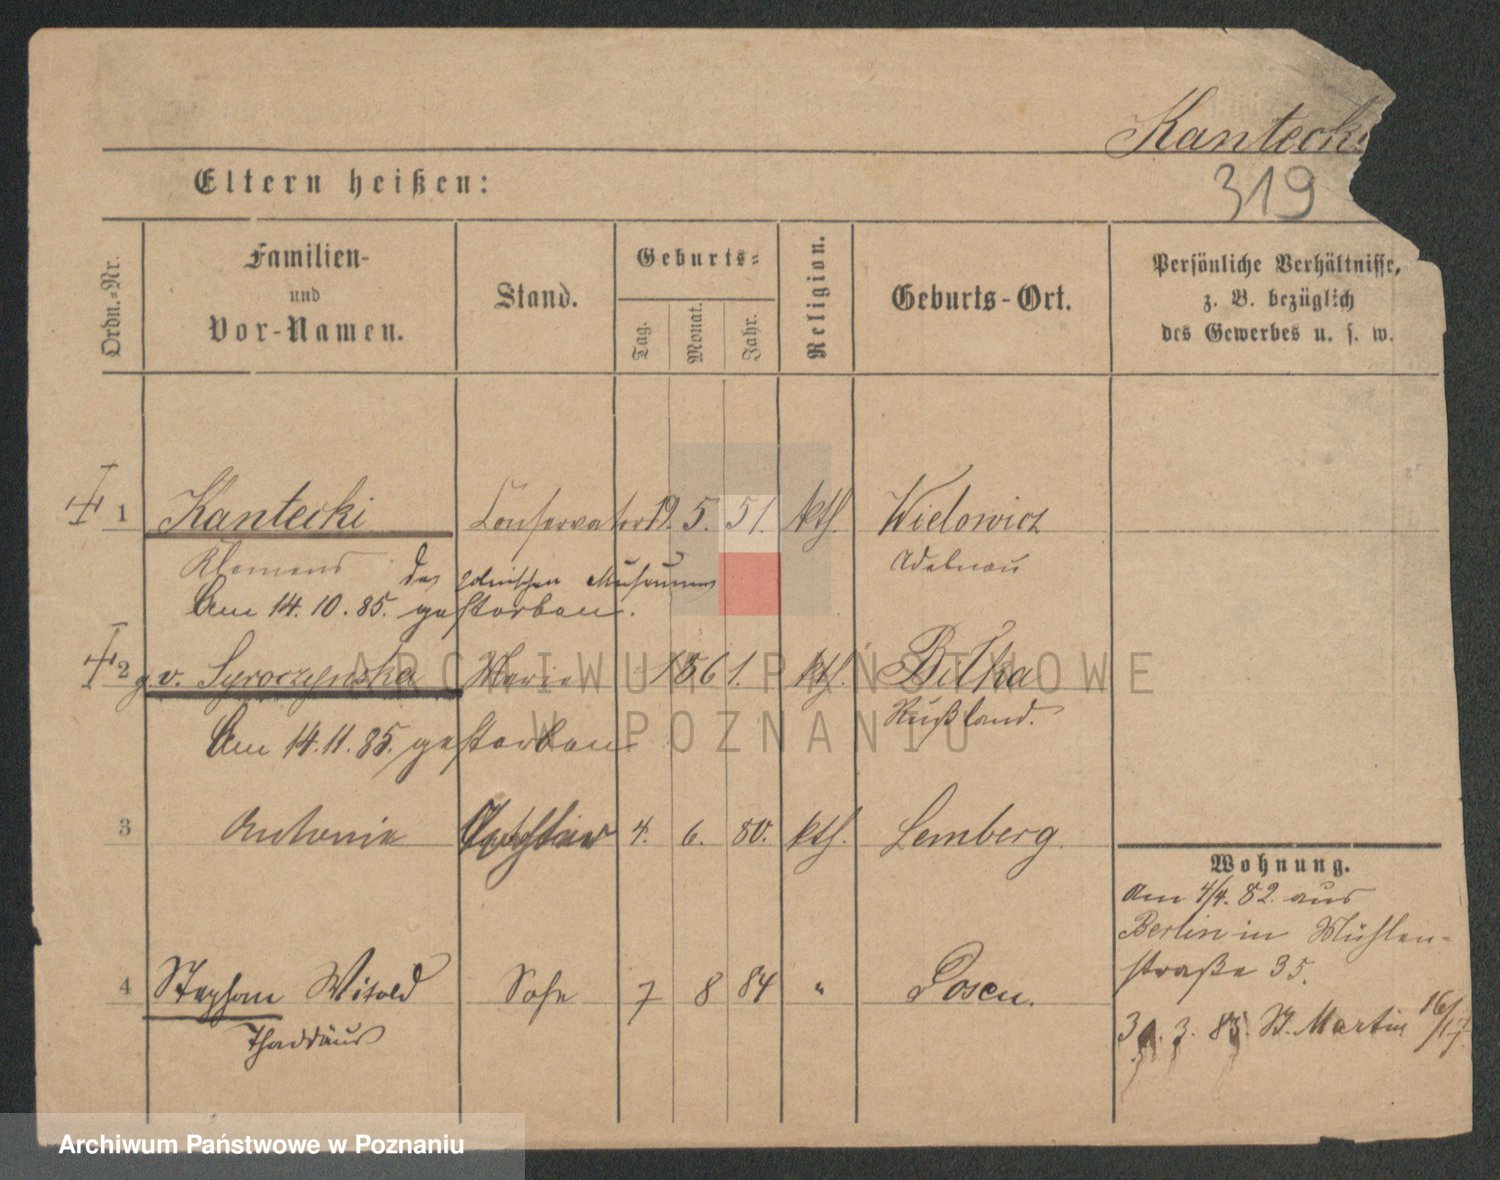 Kantecki
Eltern heißen:
319
Ordn.-Nr.
Familien-
und
Vor-Namen.
Stand.
Geburts-
Tag.
Monat.
Jahr.
Religion.
Geburts-Ort.
Persönliche Verhältnisse,
z. B. bezüglich
des Gewerbes u. s. w.
1 Kantecki Conservator 19. 5. 51. kth. Wielowicz
Klemens des polnischen Museums Adelnau
Am 14.10.85. gestorben.
2 g. v. Syroczynska Marie 1861. kth. Biłka
Rußland.
Am 14.11.85. gestorben
3 Antonie Tochter 4. 6. 80. kth. Lemberg.
Wohnung.
Am 4/4. 82. aus
Berlin in Mühlen-
straße 35.
4 Stephan Witold Sohn 7 8 84 " Posen.
Thaddäus
3. 85. St. Martin 16/17.
ARCHIWUM PAŃSTWOWE
W POZNANIU
Archiwum Państwowe w Poznaniu